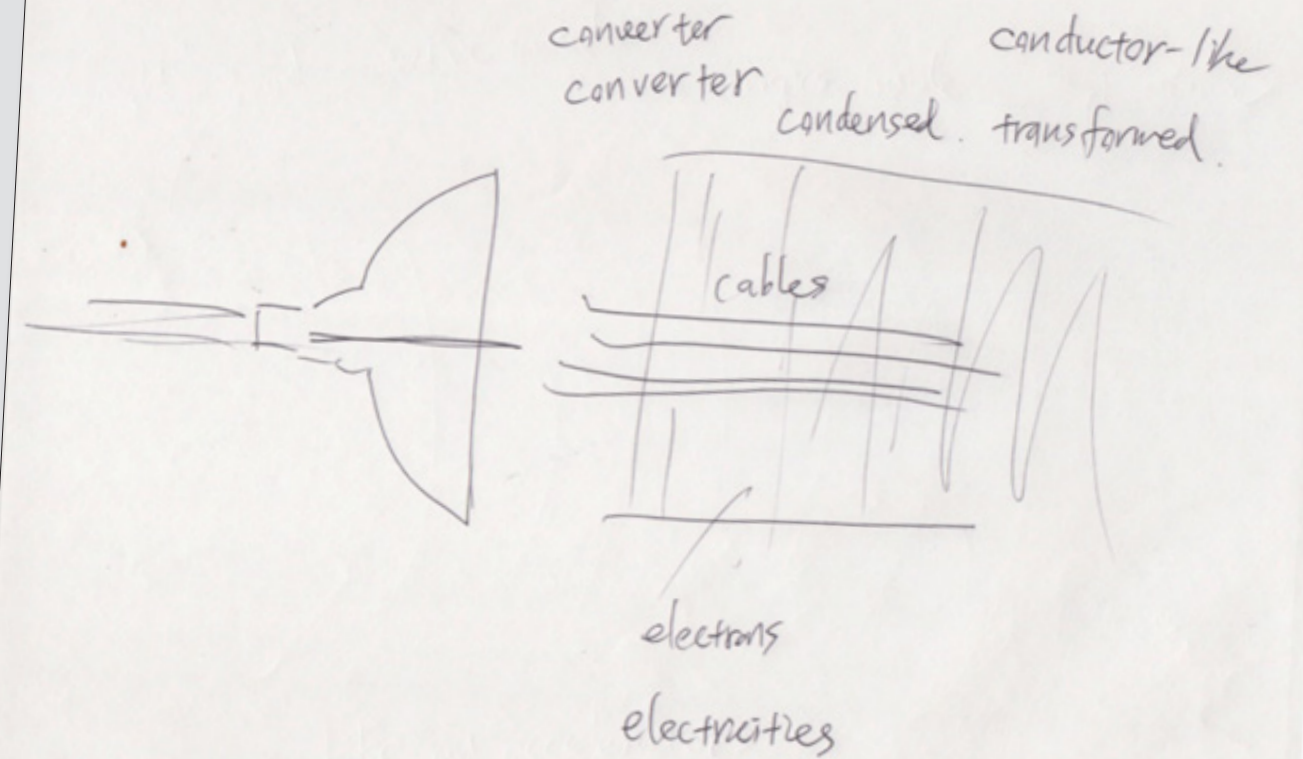 converter
converter
conductor-like
condensed. transformed.
cables
electrons
electricities